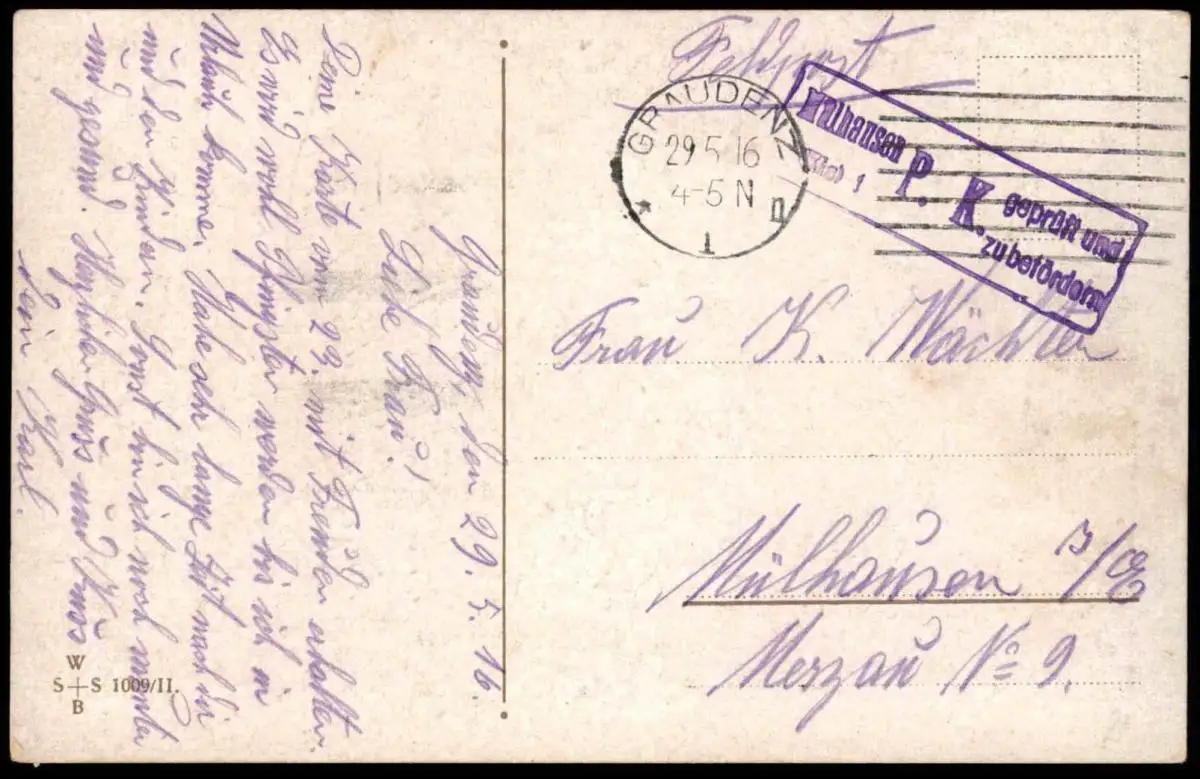 Feldpost
GRAUDENZ
29 5 16
4-5 N
1 n
Mülhausen
(Els) 1
P. K.
geprüft und
zu befördern
Frau K. Wächter
Mülhausen i/E
Merzau No 9.
Graudenz, den 29. 5. 16.
Liebe Frau!
Deine Karte vom 23. mit Freuden erhalten.
Es wird wohl Pfingsten werden bis ich in
Urlaub komme. Habe sehr lange Zeit nach dir
und den Kindern. Sonst bin ich noch munter
und gesund. Herzlicher Gruss und Kuss
Dein Karl.
W
S+S 1009/II.
B